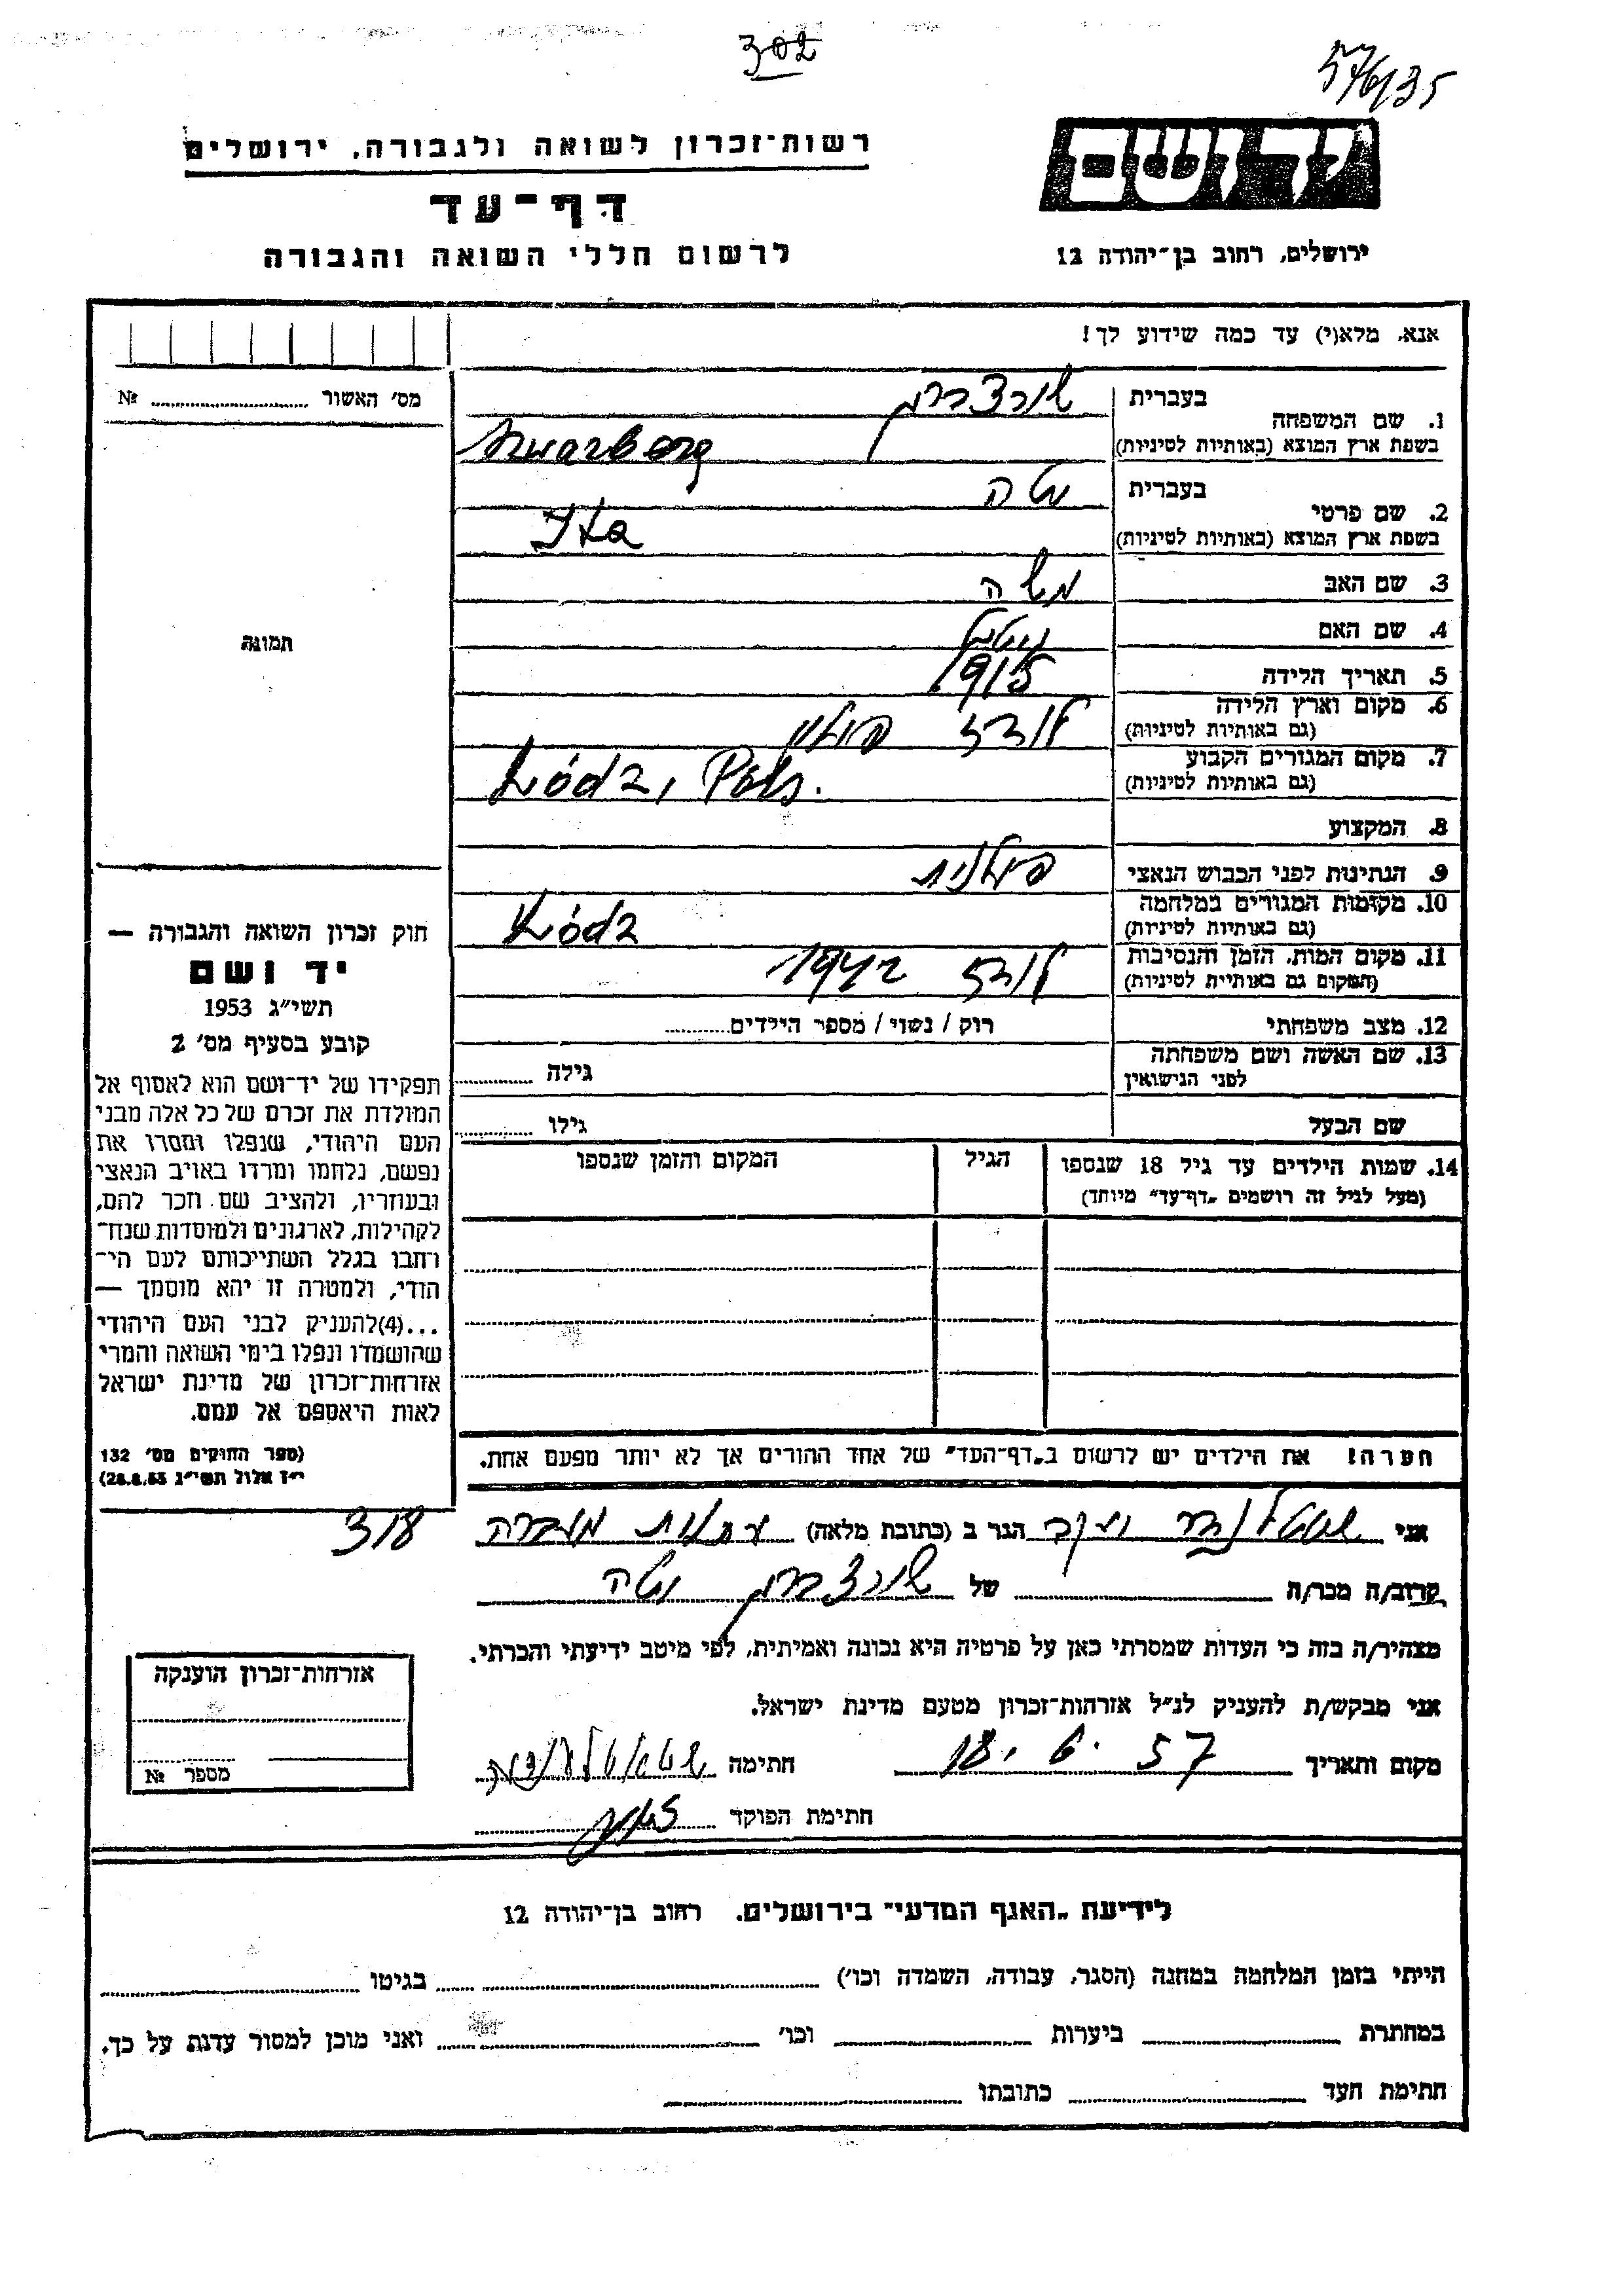 302
57/6135
רשות־זכרון לשואה ולגבורה, ירושלים
דף־עד
לרשום חללי השואה והגבורה
יד ושם
ירושלים, רחוב בן־יהודה 12
אנא, מלא(י) עד כמה שידוע לך!
מס׳ האשור № 
1. שם המשפחה בעברית שורצברג
בשפת ארץ המוצא (באותיות לטיניות) Szwarzberg
2. שם פרטי בעברית יטה
בשפת ארץ המוצא (באותיות לטיניות) Ita
3. שם האב משה
4. שם האם
5. תאריך הלידה 1915
6. מקום וארץ הלידה (גם באותיות לטיניות) לודז פולין
7. מקום המגורים הקבוע (גם באותיות לטיניות) Łódz, Pols.
8. המקצוע
9. הנתינות לפני הכבוש הנאצי פולנית
10. מקומות המגורים במלחמה (גם באותיות לטיניות) Łódz
11. מקום המות, הזמן והנסיבות (המקום גם באותיות לטיניות) לודז 1942
12. מצב משפחתי רוק / נשוי / מספר הילדים
13. שם האשה ושם משפחתה לפני הנישואין גילה
שם הבעל גילו
14. שמות הילדים עד גיל 18 שנספו הגיל המקום והזמן שנספו
(מעל לגיל זה רושמים „דף־עד" מיוחד)
תמונה
חוק זכרון השואה והגבורה —
יד ושם
תשי"ג 1953
קובע בסעיף מס׳ 2
תפקידו של יד־ושם הוא לאסוף אל
המולדת את זכרם של כל אלה מבני
העם היהודי, שנפלו ומסרו את
נפשם, נלחמו ומרדו באויב הנאצי
ובעוזריו, ולהציב שם וזכר להם,
לקהילות, לארגונים ולמוסדות שנח־
רחבו בגלל השתייכותם לעם הי־
הודי, ולמטרה זו יהא מוסמך —
...(4)להעניק לבני העם היהודי
שהושמדו ונפלו בימי השואה והמרי
אזרחות־זכרון של מדינת ישראל
לאות היאספם אל עמם.
(ספר החוקים מס׳ 132
י"ז אלול תשי"ג 28.8.53)
הערה! את הילדים יש לרשום ב„דף־העד" של אחד ההורים אך לא יותר מפעם אחת.
318
אני הגר ב (כתובת מלאה)
קרוב/ה מכר/ה של שורצברג יטה
מצהיר/ה בזה כי העדות שמסרתי כאן על פרטיה היא נכונה ואמיתית, לפי מיטב ידיעתי והכרתי.
אני מבקש/ת להעניק לנ"ל אזרחות־זכרון מטעם מדינת ישראל.
מקום ותאריך 18.6.57 חתימה
חתימת הפוקד
אזרחות־זכרון הוענקה
מספר №
לידיעת „האגף המדעי" בירושלים. רחוב בן־יהודה 12
הייתי בזמן המלחמה במחנה (הסגר, עבודה, השמדה וכו׳) בגיטו
במחתרת ביערות וכו׳ ואני מוכן למסור עדות על כך.
חתימת העד כתובתו